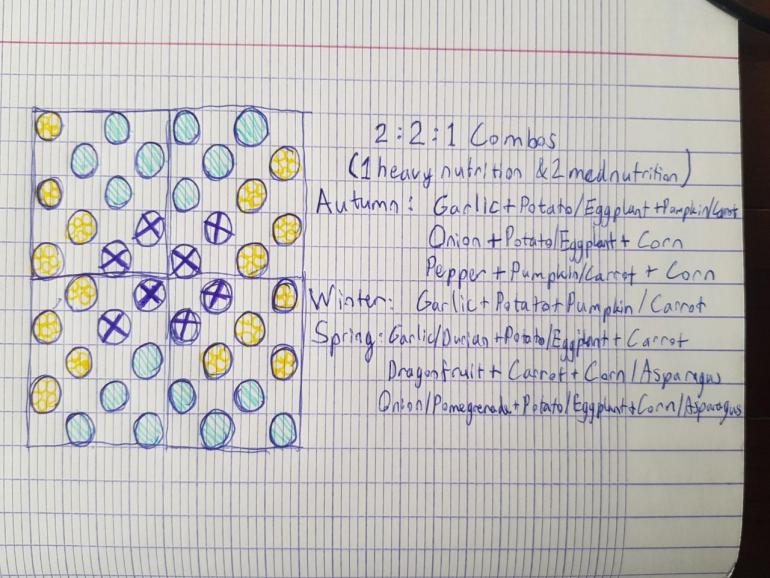 2:2:1 Combos
(1 heavy nutrition & 2 mednutrition)
Autumn: Garlic+Potato/Eggplant+Pumpkin/Carrot
Onion+Potato/Eggplant+Corn
Pepper+Pumpkin/Carrot+Corn
Winter: Garlic+Potato+Pumpkin/Carrot
Spring: Garlic/Durian+Potato/Eggplant+Carrot
Dragonfruit+Carrot+Corn/Asparagus
Onion/Pomegrenade+Potato/Eggplant+Corn/Asparagus